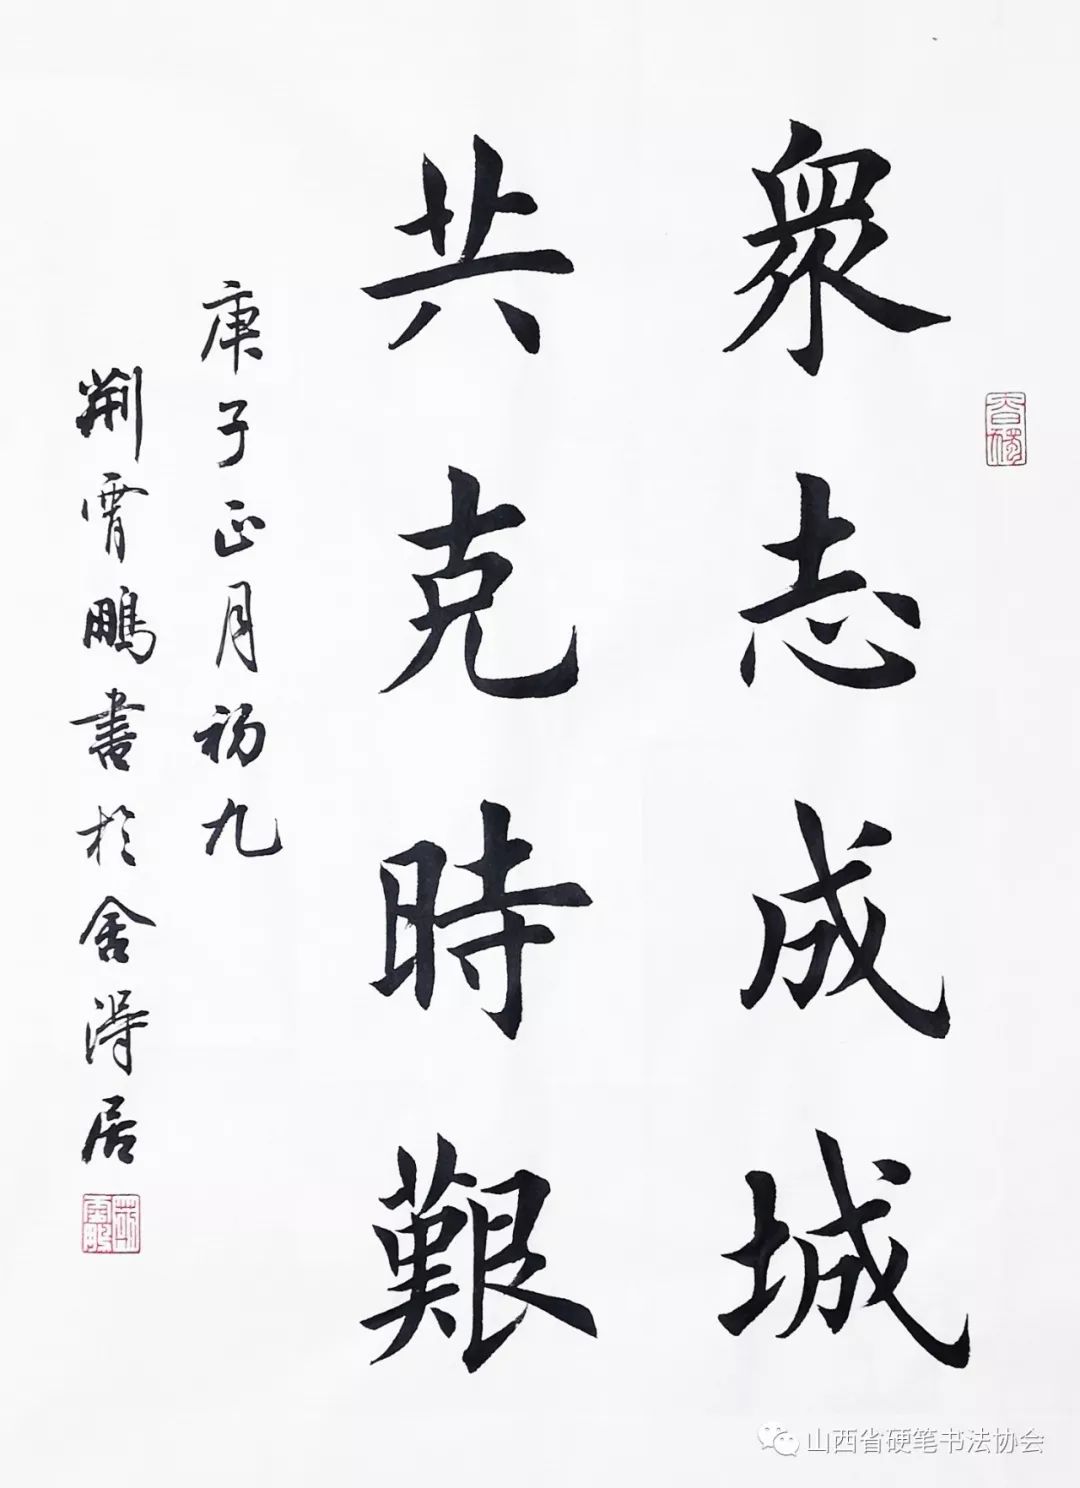 眾志成城
共克時艱
庚子正月初九
荆霄鵬書於舍得居
山西省硬笔书法协会